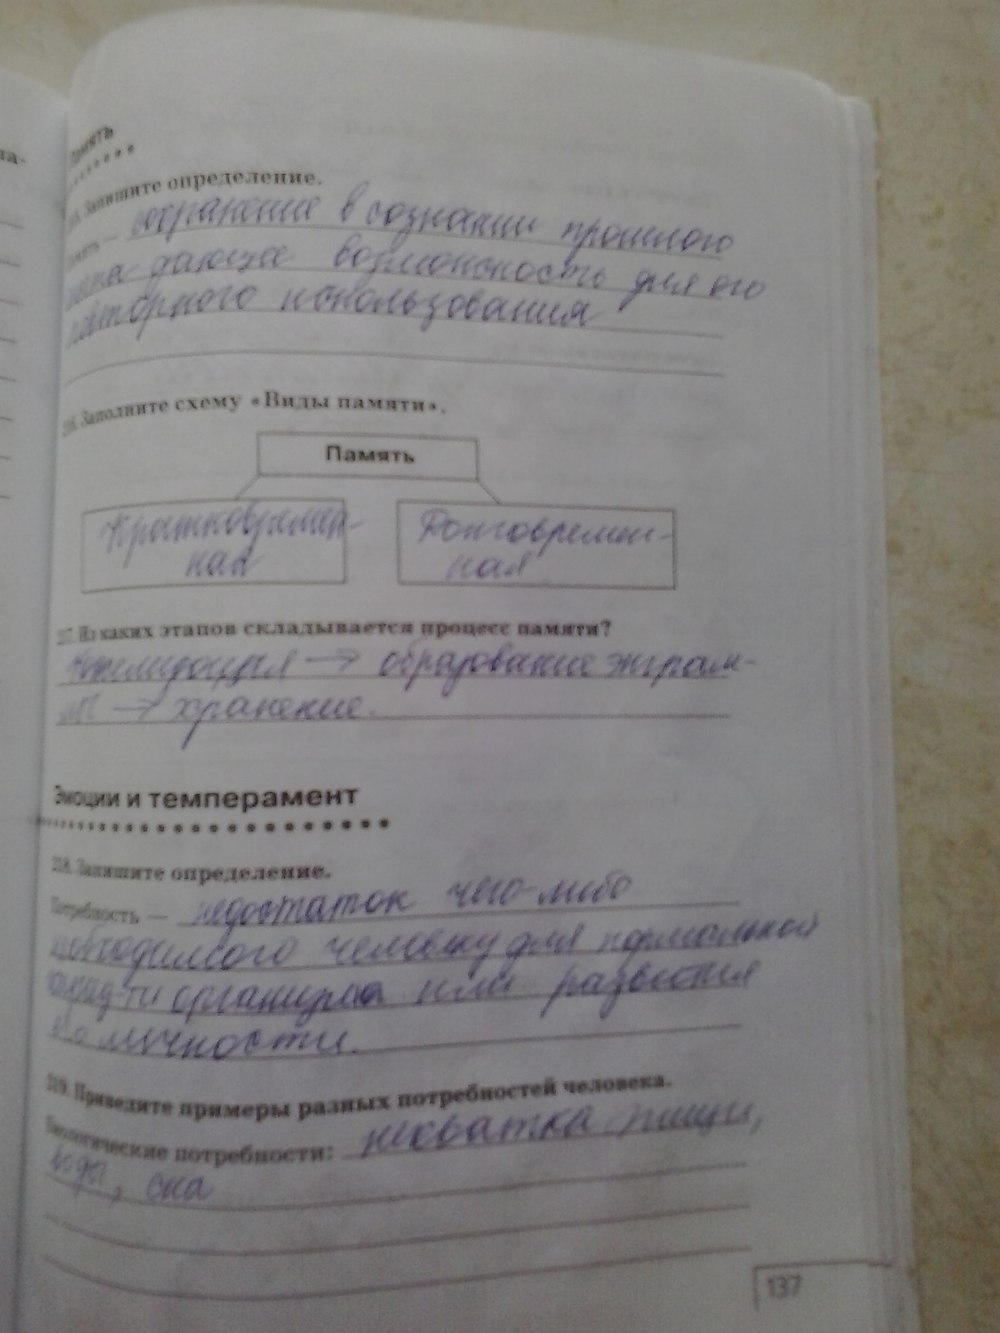 Память
Запишите определение.
сохранение в сознании прошлого
дающее возможность для его
повторного использования
Заполните схему «Виды памяти».
Память
Кратковремен- Долговремен-
ная ная
Из каких этапов складывается процесс памяти?
→ образование энграм-
мы → хранение.
Эмоции и темперамент
318. Запишите определение.
Потребность — недостаток чего-либо
необходимого человеку для нормальной
организма или развития
его личности.
319. Приведите примеры разных потребностей человека.
Биологические потребности: нехватка пищи,
воды, сна
137